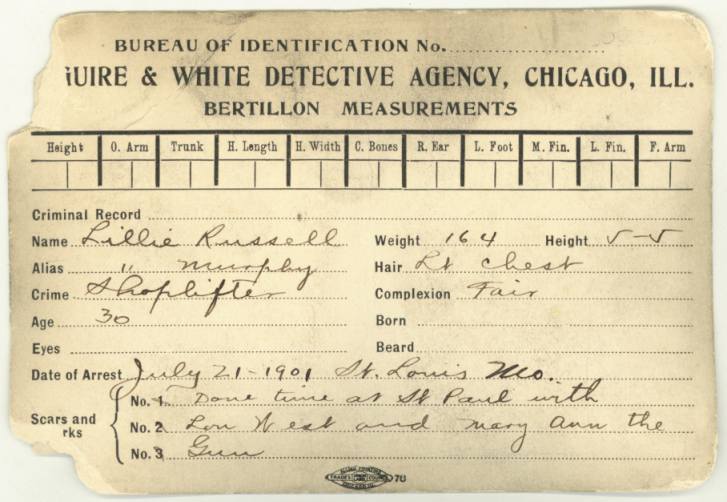 BUREAU OF IDENTIFICATION No.
UIRE & WHITE DETECTIVE AGENCY, CHICAGO, ILL.
BERTILLON MEASUREMENTS
Height O. Arm Trunk H. Length H. Width C. Bones R. Ear L. Foot M. Fin. L. Fin. F. Arm
Criminal Record
Name Lillie Russell Weight 164 Height 5-5
Alias " Murphy Hair Lt Chest
Crime Shoplifter Complexion Fair
Age 30 Born
Eyes Beard
Date of Arrest July 21-1901 St. Louis Mo.
No. 1 Done time at St Paul with
Scars and
rks
No. 2 Lou West and Mary Ann the
No. 3 Gun